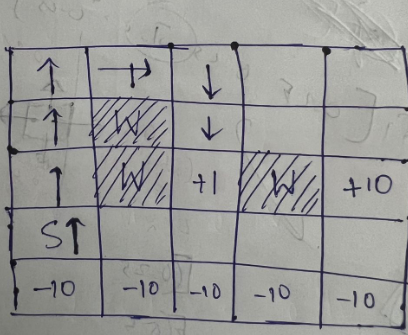 ↑ → ↓
↑ W ↓
↑ W +1 W +10
S↑
-10 -10 -10 -10 -10